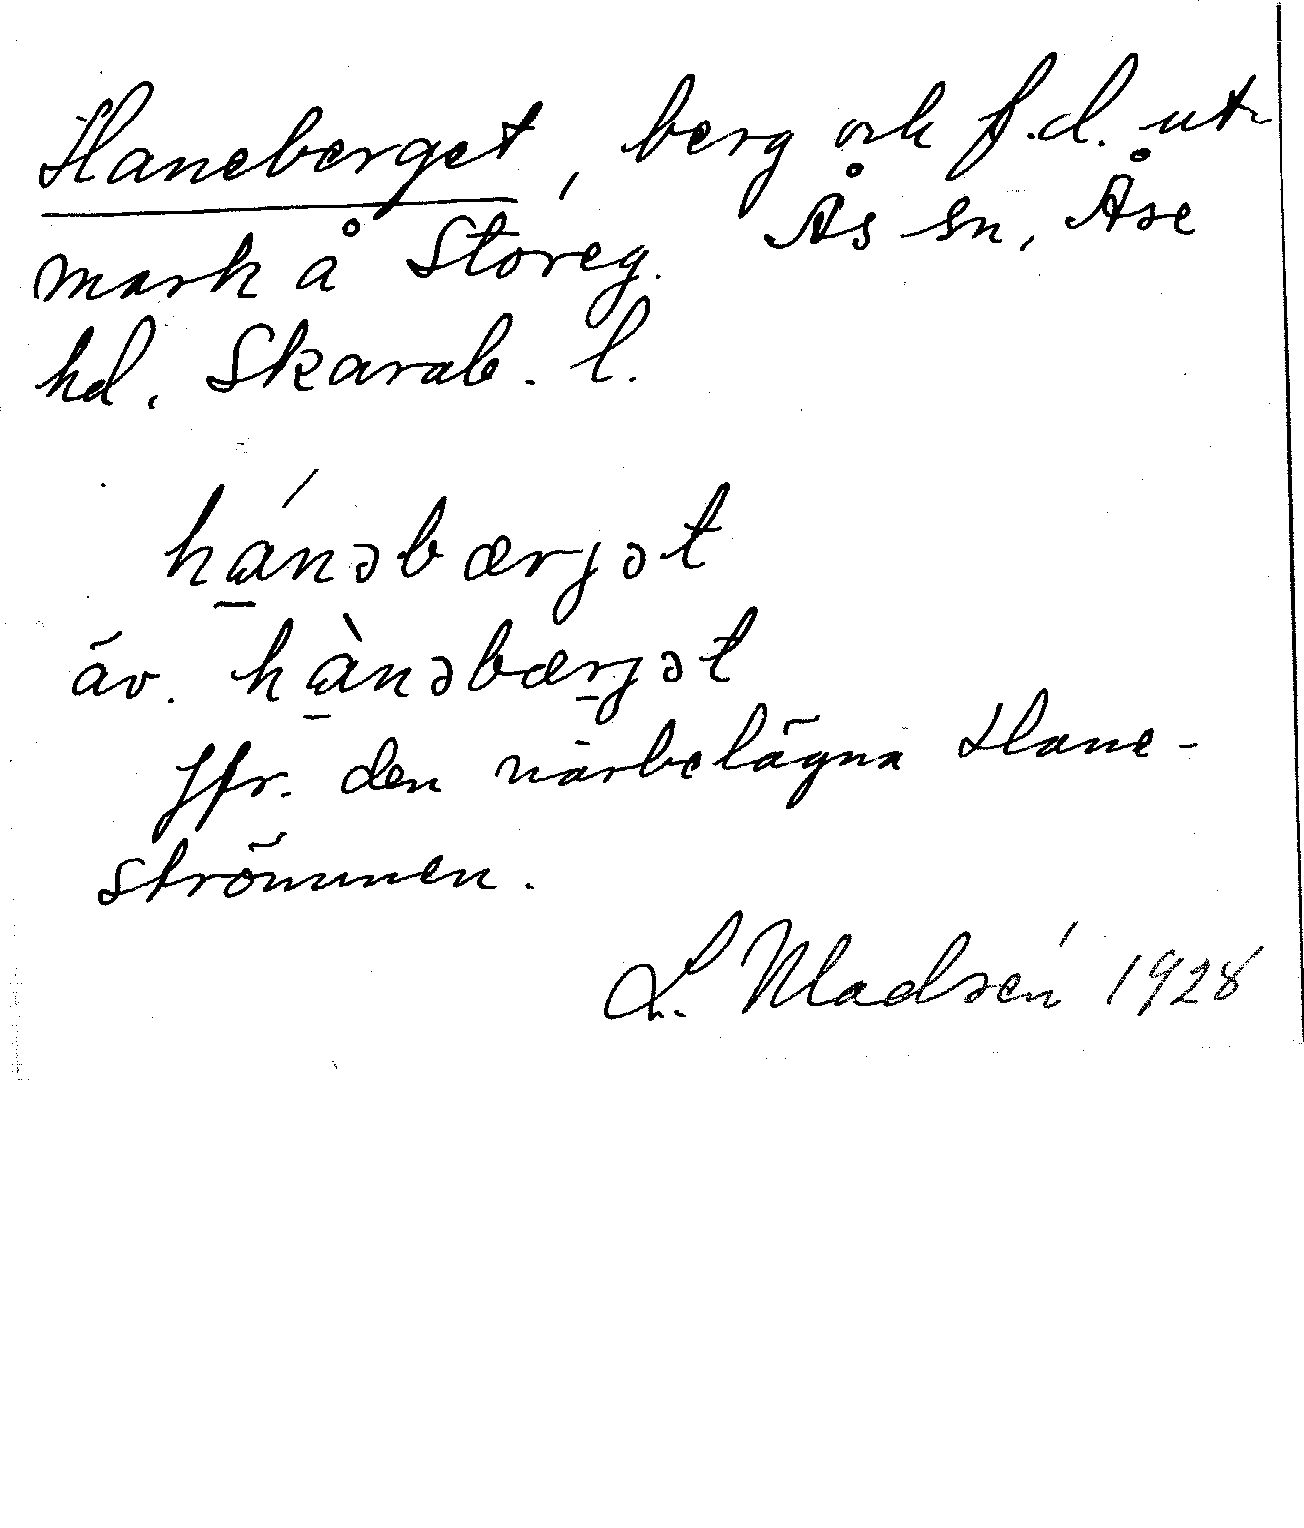 Haneberget, berg och f.d. ut-
mark å Storeg. Ås sn, Åse
hd. Skarab. l.
hánəbærjət
äv. hànəbærjət
Jfr. den närbelägna Hane-
strömmen.
L. Madsén 1928